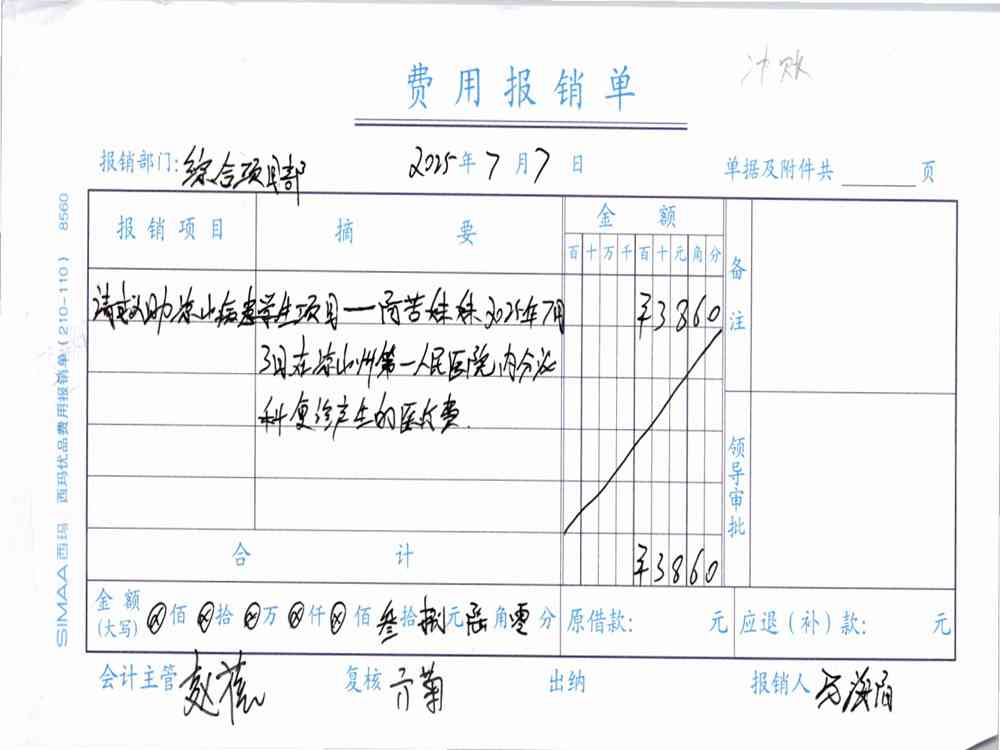 冲账
费用报销单
报销部门:综合项目部 2025年7月7日 单据及附件共 页
报销项目 摘要 金额 备注
百十万千百十元角分
请救助凉山病患学生项目一阿苦妹妹2025年7月 ¥3860
3日在凉山州第一人民医院内分泌
科复诊产生的医疗费.
领导审批
合计 ¥3860
金额(大写) ⊗佰⊗拾⊗万⊗仟⊗佰叁拾捌元陆角零分 原借款: 元 应退(补)款: 元
会计主管 复核 出纳 报销人
SIMAA西玛 西玛优品费用报销单(210-110) 8560